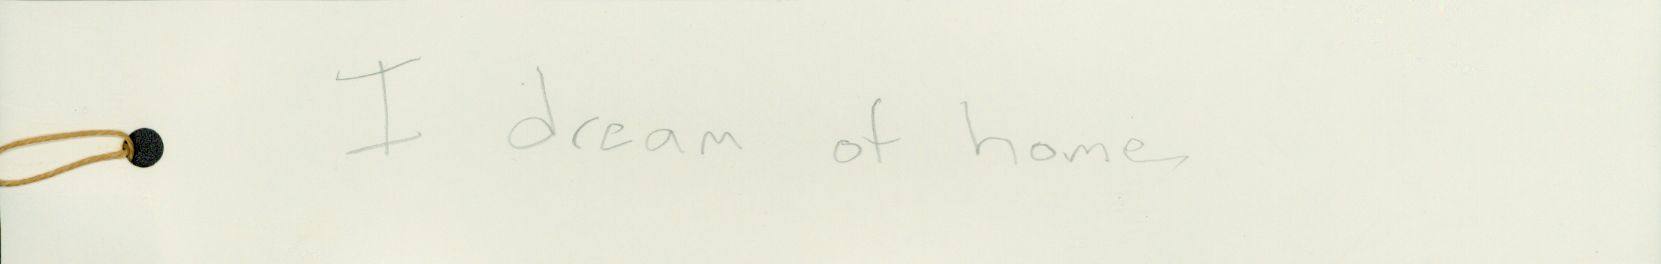 I dream of home